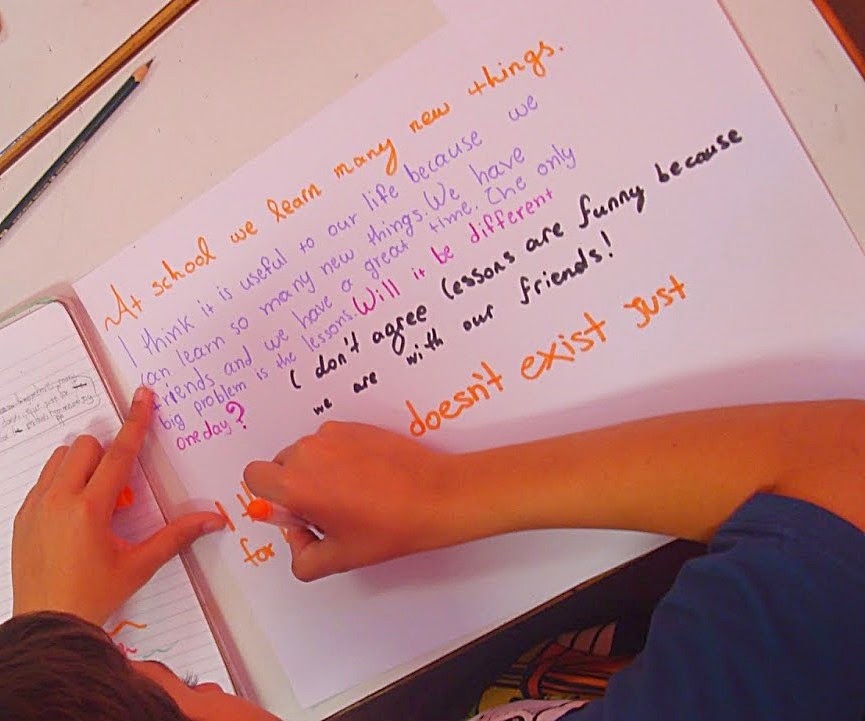 At school we learn many new things.
I think it is useful to our life because we
can learn so many new things. We have
friends and we have a great time. The only
big problem is the lessons. Will it be different
one day?
I don't agree lessons are funny because
we are with our friends!
doesn't exist just
for